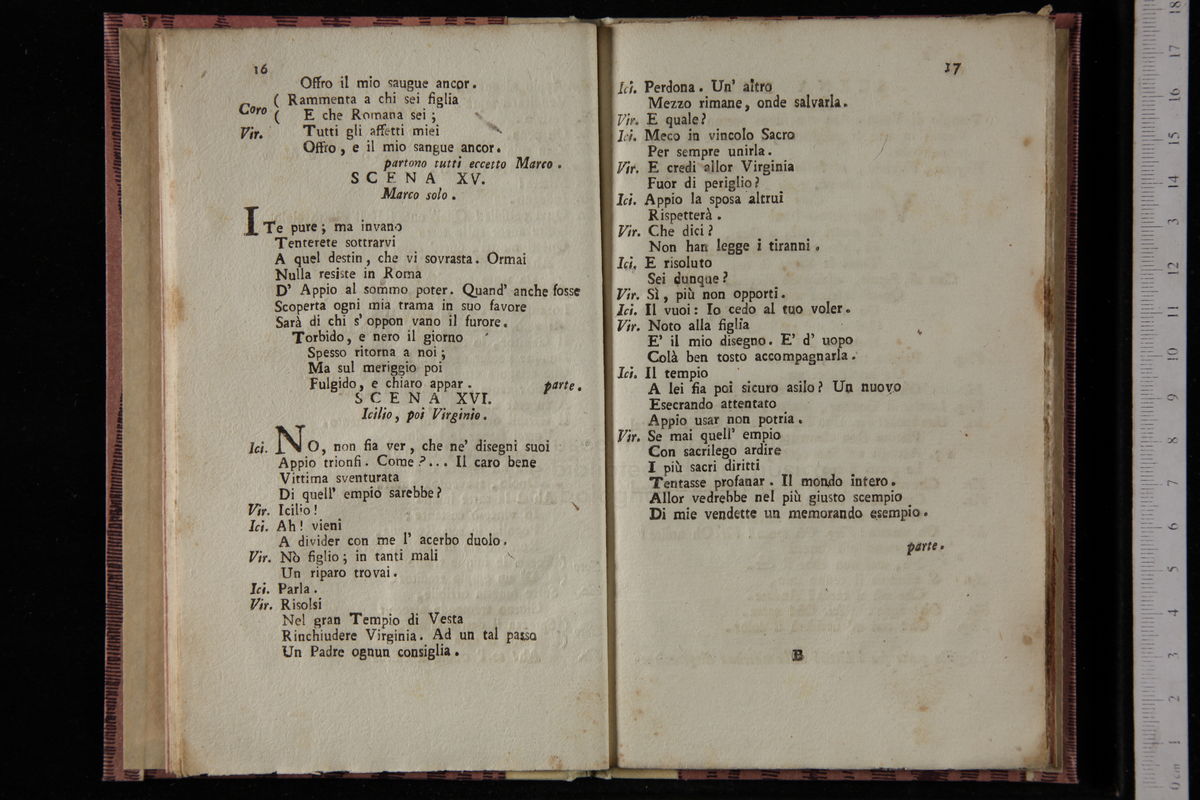 16
Offro il mio saugue ancor.
( Rammenta a chi sei figlia
Coro ( E che Romana sei ;
Vir. Tutti gli affetti miei
Offro, e il mio sangue ancor.
partono tutti eccetto Marco.
SCENA XV.
Marco solo.
ITe pure ; ma invano
Tenterete sottrarvi
A quel destin, che vi sovrasta. Ormai
Nulla resiste in Roma
D' Appio al sommo poter. Quand' anche fosse
Scoperta ogni mia trama in suo favore
Sarà di chi s' oppon vano il furore.
Torbido, e nero il giorno
Spesso ritorna a noi ;
Ma sul meriggio poi
Fulgido, e chiaro appar. parte.
SCENA XVI.
Icilio, poi Virginio.
Ici. NO, non fia ver, che ne' disegni suoi
Appio trionfi. Come ?... Il caro bene
Vittima sventurata
Di quell' empio sarebbe?
Vir. Icilio!
Ici. Ah! vieni
A divider con me l' acerbo duolo.
Vir. Nò figlio ; in tanti mali
Un riparo trovai.
Ici. Parla.
Vir. Risolsi
Nel gran Tempio di Vesta
Rinchiudere Virginia. Ad un tal passo
Un Padre ognun consiglia.
17
Ici. Perdona. Un' altro
Mezzo rimane, onde salvarla.
Vir. E quale?
Ici. Meco in vincolo Sacro
Per sempre unirla.
Vir. E credi allor Virginia
Fuor di periglio?
Ici. Appio la sposa altrui
Rispetterà.
Vir. Che dici?
Non han legge i tiranni.
Ici. E risoluto
Sei dunque?
Vir. Sì, più non opporti.
Ici. Il vuoi: Io cedo al tuo voler.
Vir. Noto alla figlia
E' il mio disegno. E' d' uopo
Colà ben tosto accompagnarla.
Ici. Il tempio
A lei fia poi sicuro asilo? Un nuovo
Esecrando attentato
Appio usar non potria.
Vir. Se mai quell' empio
Con sacrilego ardire
I più sacri diritti
Tentasse profanar. Il mondo intero.
Allor vedrebbe nel più giusto scempio
Di mie vendette un memorando esempio.
parte.
B
0 cm 1 2 3 4 5 6 7 8 9 10 11 12 13 14 15 16 17 18